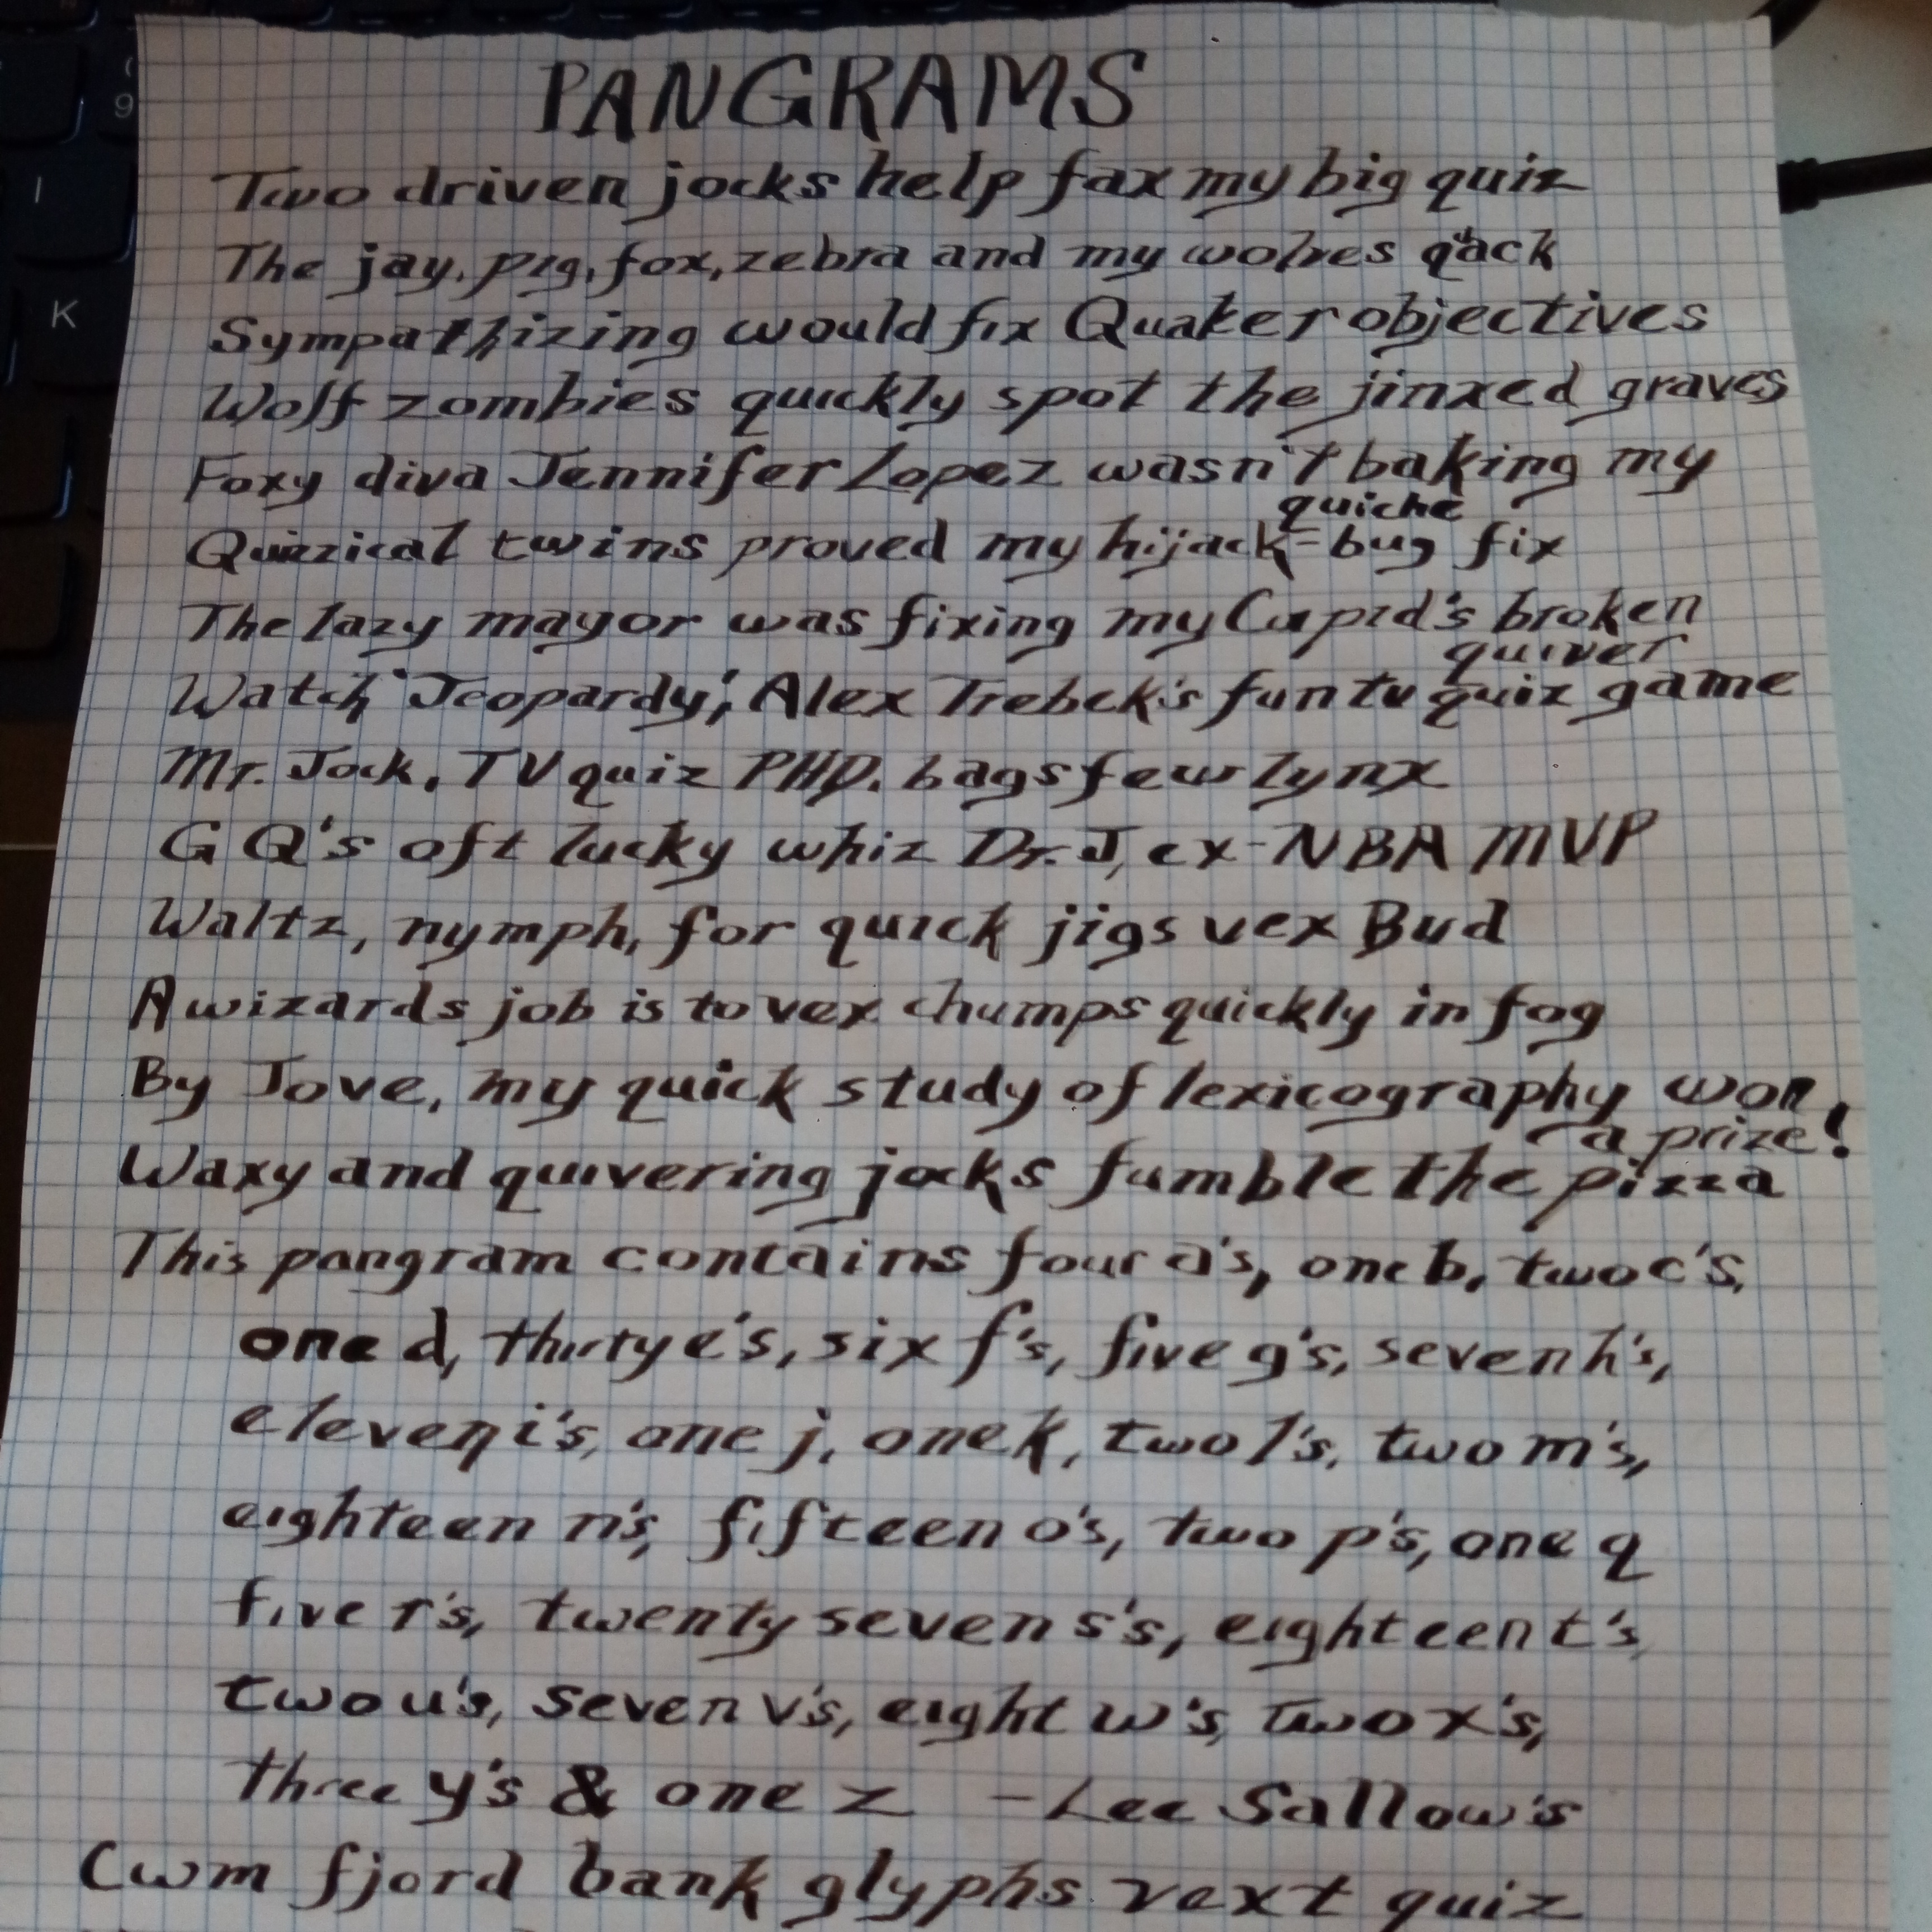 PANGRAMS
Two driven jocks help fax my big quiz
The jay, pig, fox, zebra and my wolves quack
Sympathizing would fix Quaker objectives
Wolf zombies quickly spot the jinxed graves
Foxy diva Jennifer Lopez wasn't baking my
quiche
Quizzical twins proved my hijack-bug fix
The lazy mayor was fixing my Cupid's broken
quiver
Watch "Jeopardy", Alex Trebek's fun tv quiz game
Mr. Jock, TV quiz PHD. bags few lynx
GQ's oft lucky whiz Dr. J, ex-NBA MVP
Waltz, nymph, for quick jigs vex Bud
A wizards job is to vex chumps quickly in fog
By Jove, my quick study of lexicography won
a prize!
Waxy and quivering jocks fumble the pizza
This pangram contains four a's, one b, two c's,
one d, thirty e's, six f's, five g's, seven h's,
eleven i's, one j, one k, two l's, two m's,
eighteen n's, fifteen o's, two p's, one q
five r's, twenty seven s's, eighteen t's
two u's, seven v's, eight w's, two x's,
three y's & one z -Lee Sallow's
Cwm fjord bank glyphs vext quiz
9
I
K